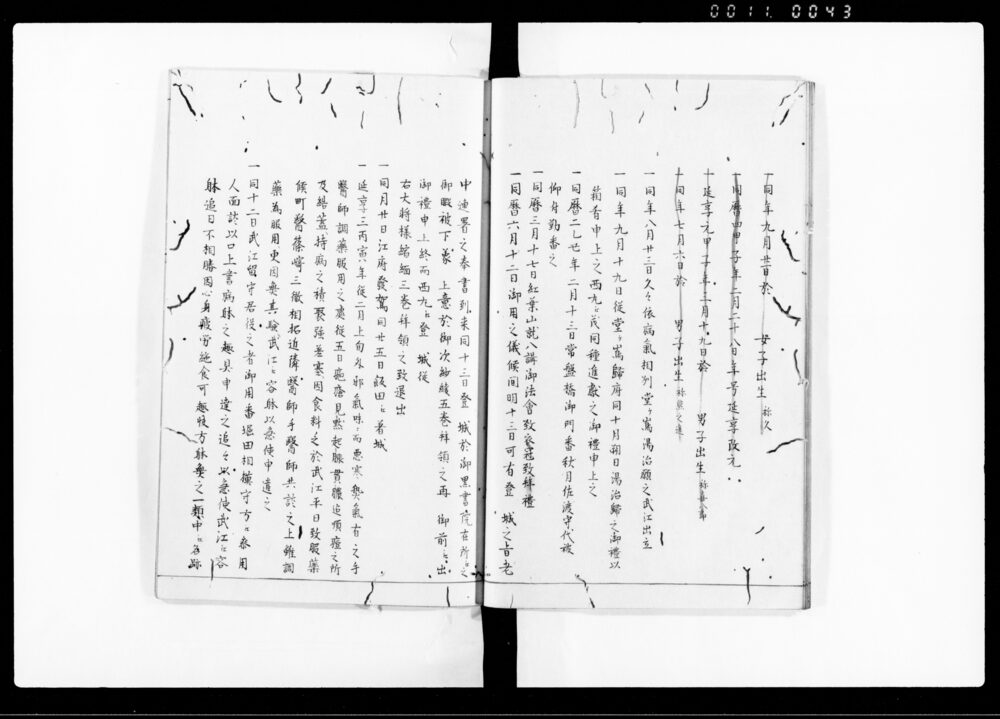 0011 0043
一同年九月廿日於 女子出生 称久
一同暦四甲子年二月二十八日年号延享改元
一延享元甲子年三月十九日於 男子出生
一同年七月六日於 男子出生
一同年八月廿三日久々依病氣相列堂ヶ嶌湯治願之武江出立
一同年九月十九日従堂ヶ嶌歸府同十月朔日湯治歸之御禮以
箱肴申上之西九江茂同種進獻之御禮申上之
一同暦二乙丑年二月十三日常盤橋御門番秋月佐渡守代被
仰付勤番之
一同暦三月十七日紅葉山就八講御法會致 拜禮
一同暦六月十二日御用之儀候間明十三日可有登 城之旨老
中連署之奉書到来同十三日登 城於御黒書院在所江之
御暇被下 上意於御次紗綾五巻拜領之再 御前江出
御禮申上終而西九江登 城従
右大将様縮緬三巻拜領之致退出
一同月廿日江府發駕同廿五日飯田江着城
一延享三丙寅年従二月上旬 邪氣味而悪寒 氣有之手
醫師調藥服用之處従五日疱瘡見 起腺貫膿追順 之所
及結蓋持病之積 強差塞因食料乏於武江平日致服藥
候町醫篠﨑三徹相招近隣醫師手醫師共談之上雖調
藥為服用更因無其驗武江江容躰以急使申遣之
一同十二日武江留守居役之者御用番堀田相模守方江参用
人面談以口上書病躰之趣具申達之追々以急使武江江容
躰追日不相勝因心身疲労絶食可 快方躰無之一類中江